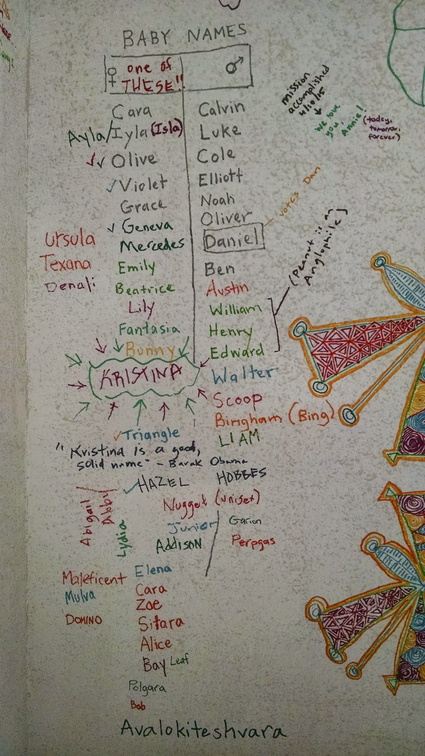 BABY NAMES
♀ one of THESE!! ♂
Cara
Ayla/Iyla (Isla)
✓✓ Olive
✓ Violet
Grace
✓ Geneva
Mercedes
Ursula
Texana
Denali
Emily
Beatrice
Lily
Fantasia
Bunny
KRISTINA
✓ Triangle
"Kristina is a good,
solid name" - Barak Obama
✓ HAZEL
Abigail/
Abby
Lydia
Calvin
Luke
Cole
Elliott
Noah
Oliver
Daniel - votes Dan
Ben
Austin
William
Henry
Edward
(Peanut is an
Anglophile)
Walter
Scoop
Bingham (Bing)
LIAM
HOBBES
Nugget (unisex)
Junior
Addison
Garion
Perpgas
Elena
Cara
Zoe
Sitara
Alice
Bay Leaf
Polgara
Bob
Maleficent
Mulva
DOMINO
Avalokiteshvara
mission
accomplished
We love
you,
Annie!
(today,
tomorrow,
forever)